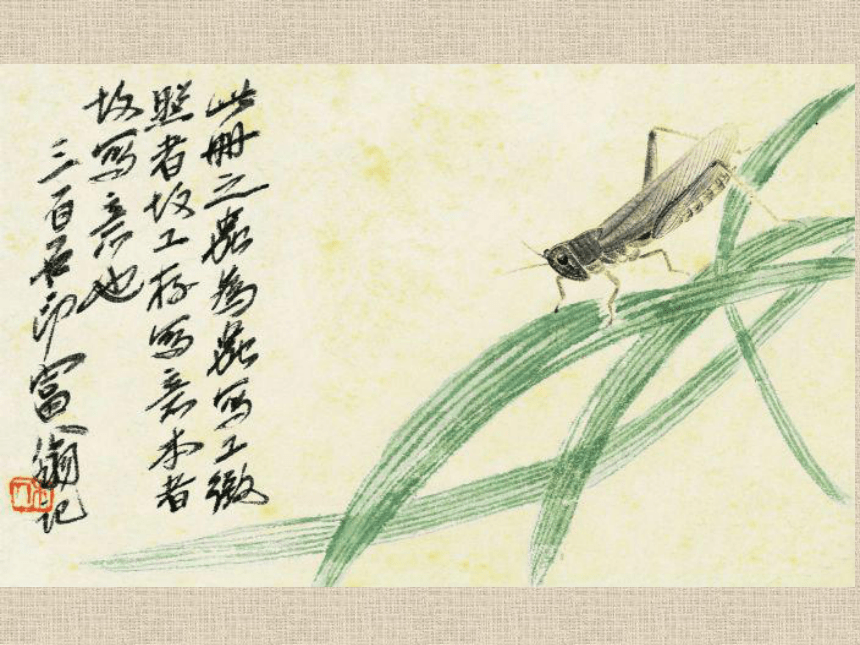 此册之蟲為蟲寫工
照者故工存寫意本者
故寫意也
三百石印富翁記